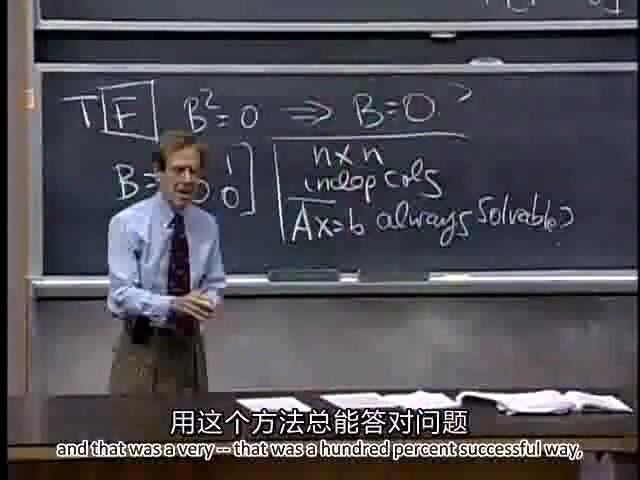 T F B² = 0 ⇒ B = 0 ?
B = 0 1
0 0
n x n
indep cols
Ax = b always solvable?
用这个方法总能答对问题
and that was a very -- that was a hundred percent successful way,